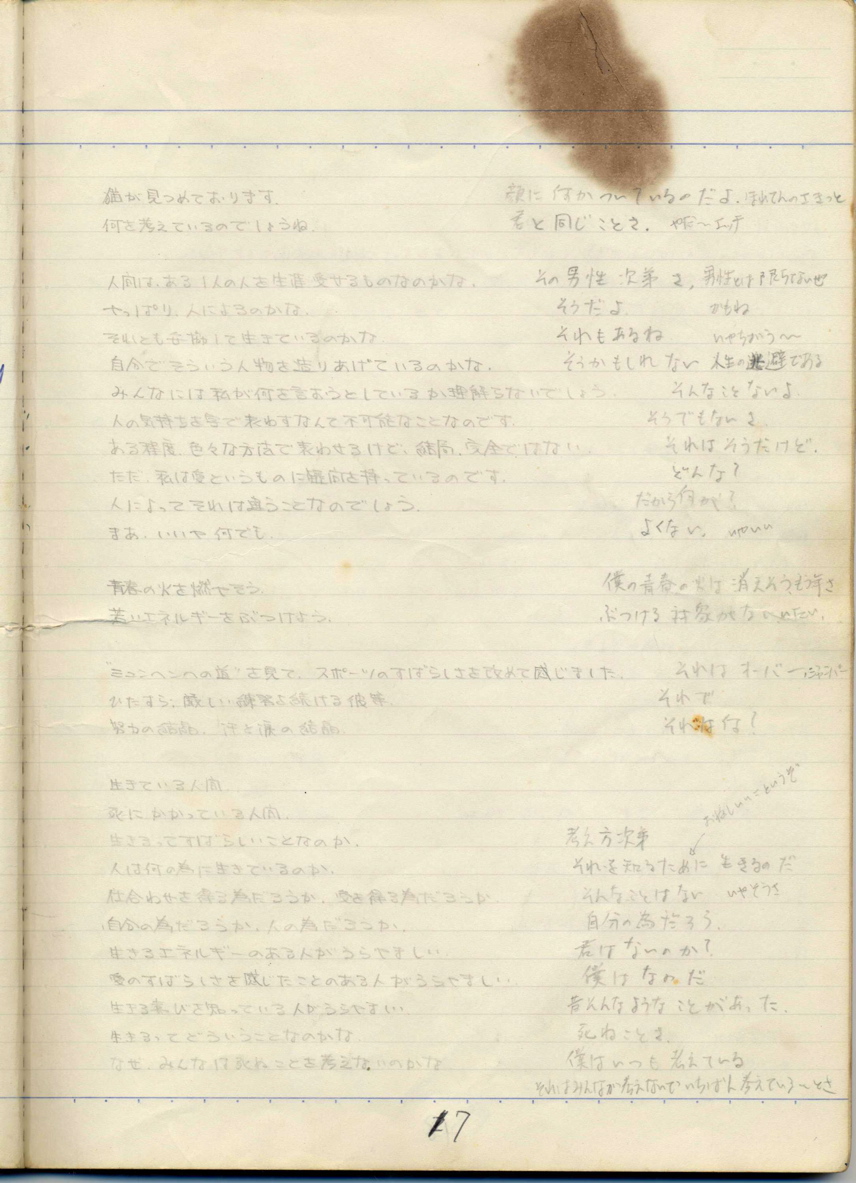 猫が見つめております。 顔に何かついているのだよ。
何を考えているのでしょうね。 君と同じことさ。
人間は、ある1人の人を生涯愛せるものなのかな。 その男性次第さ、男性とは限らないぜ
やっぱり、人によるのかな。 そうだよ。 かもね
それとも妥協して生きているのかな。 それもあるね いやちがう〜
自分でそういう人物を造りあげているのかな。 そうかもしれない 人生の逃避である
みんなには私が何を言おうとしているか理解らないでしょう。 そんなことないよ。
人の気持ちを言で表わすなんて不可能なことなのです。 そうでもないよ
ある程度、色々な方法で表わせるけど、結局、完全ではない。 それはそうだけど。
ただ、私は愛というものに疑問を持っているのです。 どんな?
人によってそれは違うことなのでしょう。 だから何が?
まあ、いいや何でも。 よくない。 いやいい
青春の火を燃やそう。 僕の青春の火は消えそうもう年さ
若いエネルギーをぶつけよう。 ぶつける対象がない
"ミュンヘンへの道"を見て、スポーツのすばらしさを改めて感じました。 それはオーバー
ひたすら、厳しい練習を続ける彼等。 それで
努力の結晶、汗と涙の結晶。 それはな?
生きている人間。
死にかかっている人間。
生きるってすばらしいことなのか。 考え方次第
人は何の為に生きているのか。 それを知るために生きるのだ
仕合わせを得る為だろうか、愛を得る為だろうか。 そんなことはない いやそうさ
自分の為だろうか、人の為だろうか。 自分の為だろう。
生きるエネルギーのある人がうらやましい。 君はないのか?
愛のすばらしさを感じたことのある人がうらやましい。 僕はなんだ
生きる喜びを知っている人がうらやましい。 昔そんなようなことがあった。
生きるってどういうことなのかな。 死ぬことさ。
なぜ、みんなは死ぬことを考えないのかな 僕はいつも考えている
それはみんなが考えないで いちばん考えている〜とさ
17